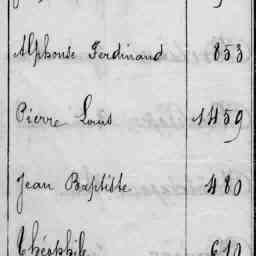 Alphonse Ferdinand 853
Pierre Louis 1459
Jean Baptiste 480
Théophile 610